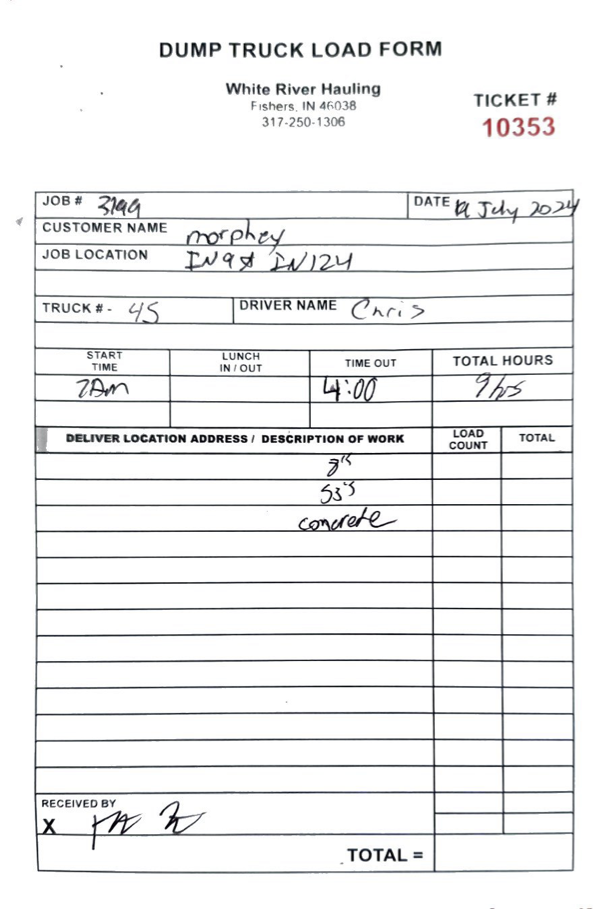 DUMP TRUCK LOAD FORM
White River Hauling
Fishers, IN 46038
317-250-1306
TICKET #
10353
JOB # 3199
DATE 19 July 2024
CUSTOMER NAME morphey
JOB LOCATION IN9 & IN124
TRUCK # - 45 DRIVER NAME Chris
START TIME LUNCH IN / OUT TIME OUT TOTAL HOURS
7Am 4:00 9 hrs
DELIVER LOCATION ADDRESS / DESCRIPTION OF WORK LOAD COUNT TOTAL
8's
53's
concrete
RECEIVED BY
X
TOTAL =